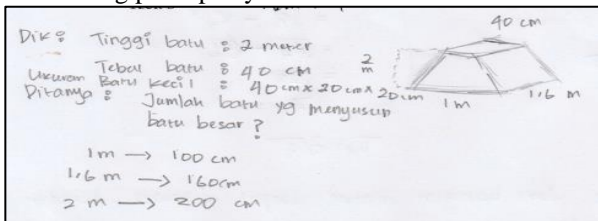 Dik : Tinggi batu : 2 meter
Tebal batu : 40 cm
Ukuran Batu kecil : 40 cm x 20 cm x 20 cm
Ditanya : Jumlah batu yg menyusun
batu besar ?
1m → 100 cm
1,6 m → 160cm
2 m → 200 cm
40 cm
2
m
1m
1,6 m